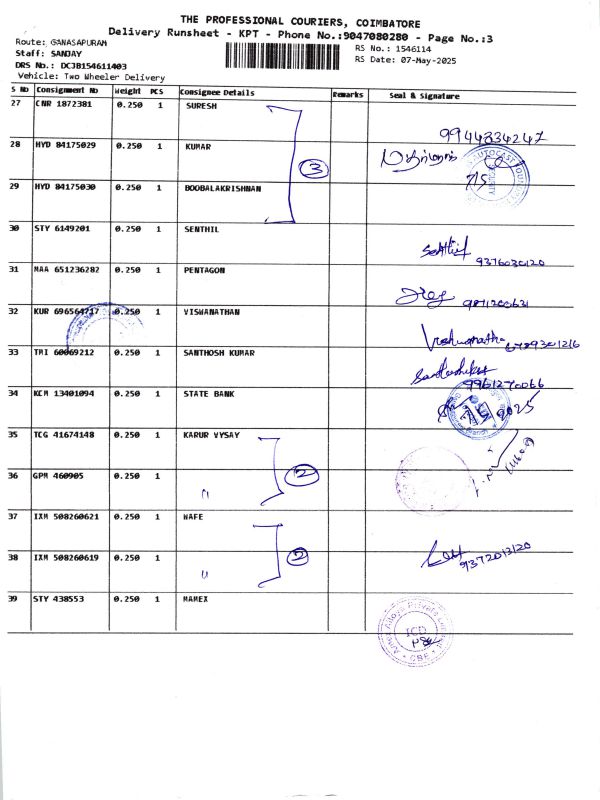 THE PROFESSIONAL COURIERS, COIMBATORE
Delivery Runsheet - KPT - Phone No.:9047080280 - Page No.:3
Route: GANASAPURAM
RS No.: 1546114
Staff: SANJAY
RS Date: 07-May-2025
DRS No.: DCJB154611403
Vehicle: Two Wheeler Delivery
S No Consignment No Weight PCS Consignee Details Remarks Seal & Signature
27 CNR 1872381 0.250 1 SURESH
9944334247
28 HYD 84175029 0.250 1 KUMAR
3
7/5
29 HYD 84175030 0.250 1 BOOBALAKRISHNAN
30 STY 6149201 0.250 1 SENTHIL
Senthil 9376030120
31 MAA 651236282 0.250 1 PENTAGON
32 KUR 696564717 0.250 1 VISWANATHAN
33 TRI 60069212 0.250 1 SANTHOSH KUMAR
9961270066
34 KCM 13401094 0.250 1 STATE BANK
2025
35 TCG 41674148 0.250 1 KARUR VYSAY
2
36 GPM 460905 0.250 1 "
37 IXM 508260621 0.250 1 NAFE
2
9372013120
38 IXM 508260619 0.250 1 "
39 STY 438553 0.250 1 MAMEX
ICD
CBE